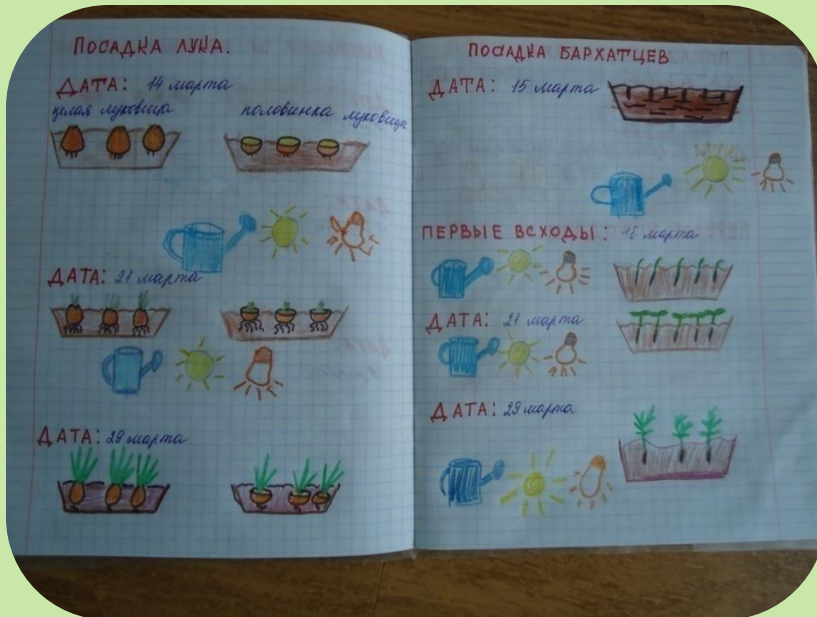 ПОСАДКА ЛУКА.
ДАТА: 14 марта
целая луковица
половинка луковицы
ДАТА: 21 марта
ДАТА: 29 марта
ПОСАДКА БАРХАТЦЕВ
ДАТА: 15 марта
ПЕРВЫЕ ВСХОДЫ: 18 марта
ДАТА: 21 марта
ДАТА: 29 марта